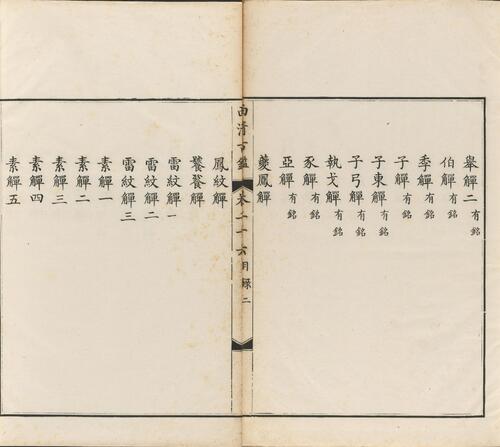 舉觶二有銘
伯觶有銘
季觶有銘
子觶有銘
子東觶有銘
子弓觶有銘
執戈觶有銘
豕觶有銘
亞觶有銘
夔鳳觶
西清古鑑 卷二十六目錄 二
鳳紋觶
饕餮觶
雷紋觶一
雷紋觶二
雷紋觶三
素觶一
素觶二
素觶三
素觶四
素觶五